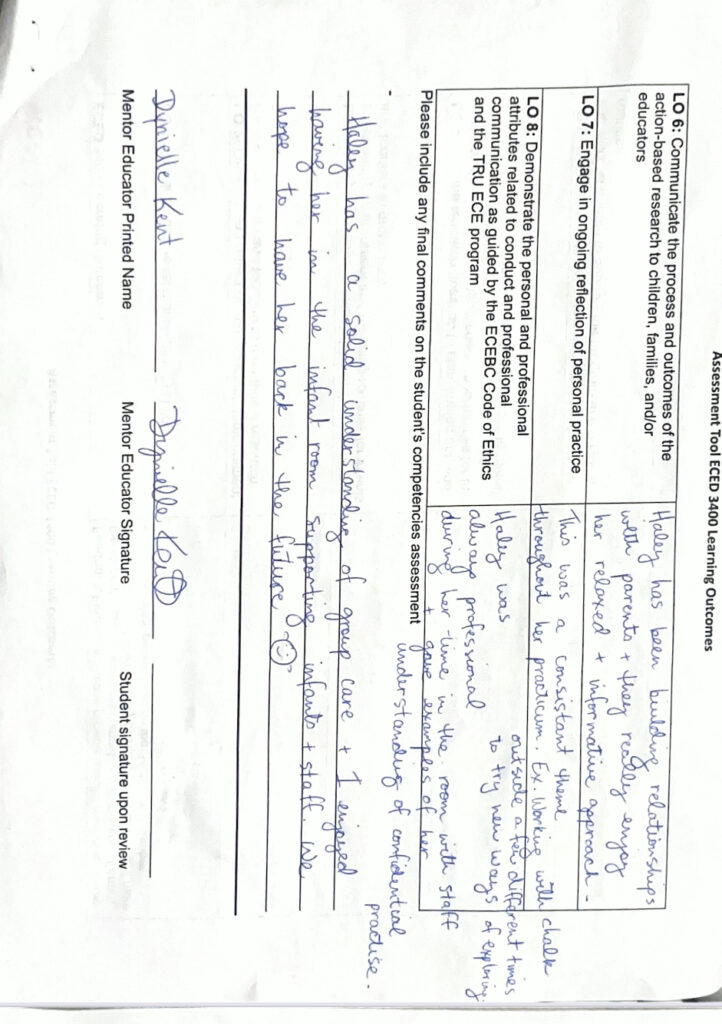 Assessment Tool ECED 3400 Learning Outcomes
LO 6: Communicate the process and outcomes of the
action-based research to children, families, and/or
educators
Haley has been building relationships
with parents + they really enjoy
her relaxed + informative approach.
LO 7: Engage in ongoing reflection of personal practice
This was a consistant theme
throughout her practicum. Ex. Working with chalk
outside a few different times
to try new ways of exploring.
LO 8: Demonstrate the personal and professional
attributes related to conduct and professional
communication as guided by the ECEBC Code of Ethics
and the TRU ECE program
Haley was
always professional
during her time in the room with staff
+ gave examples of her
understanding of confidential
practise.
Please include any final comments on the student's competencies assessment
Haley has a solid understanding of group care + I enjoyed
having her in the infant room supporting infants + staff. We
hope to have her back in the future
Dynielle Kent
Mentor Educator Printed Name
Dynielle Kent
Mentor Educator Signature
Student signature upon review